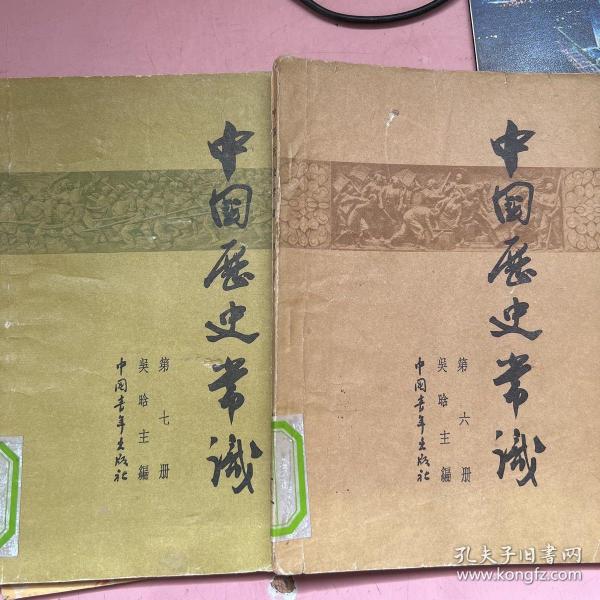 中国歷史常識
第七册
吳晗主編
中国青年出版社
中国歷史常識
第六册
吳晗主編
中国青年出版社
孔夫子旧书网
www.kongfz.com